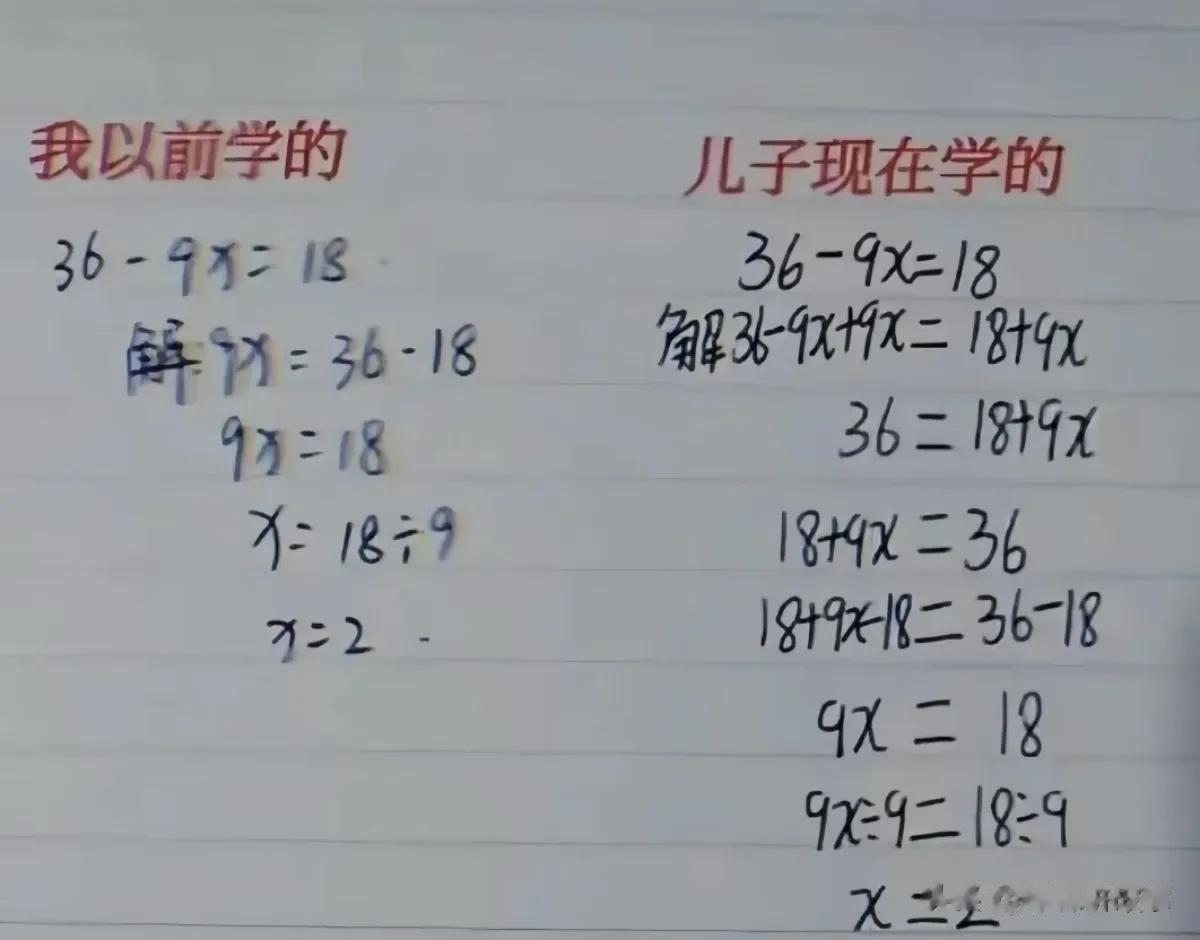 我以前学的
36-9x=18
解:9x=36-18
9x=18
x=18÷9
x=2
儿子现在学的
36-9x=18
解36-9x+9x=18+9x
36=18+9x
18+9x=36
18+9x-18=36-18
9x=18
9x÷9=18÷9
x=2